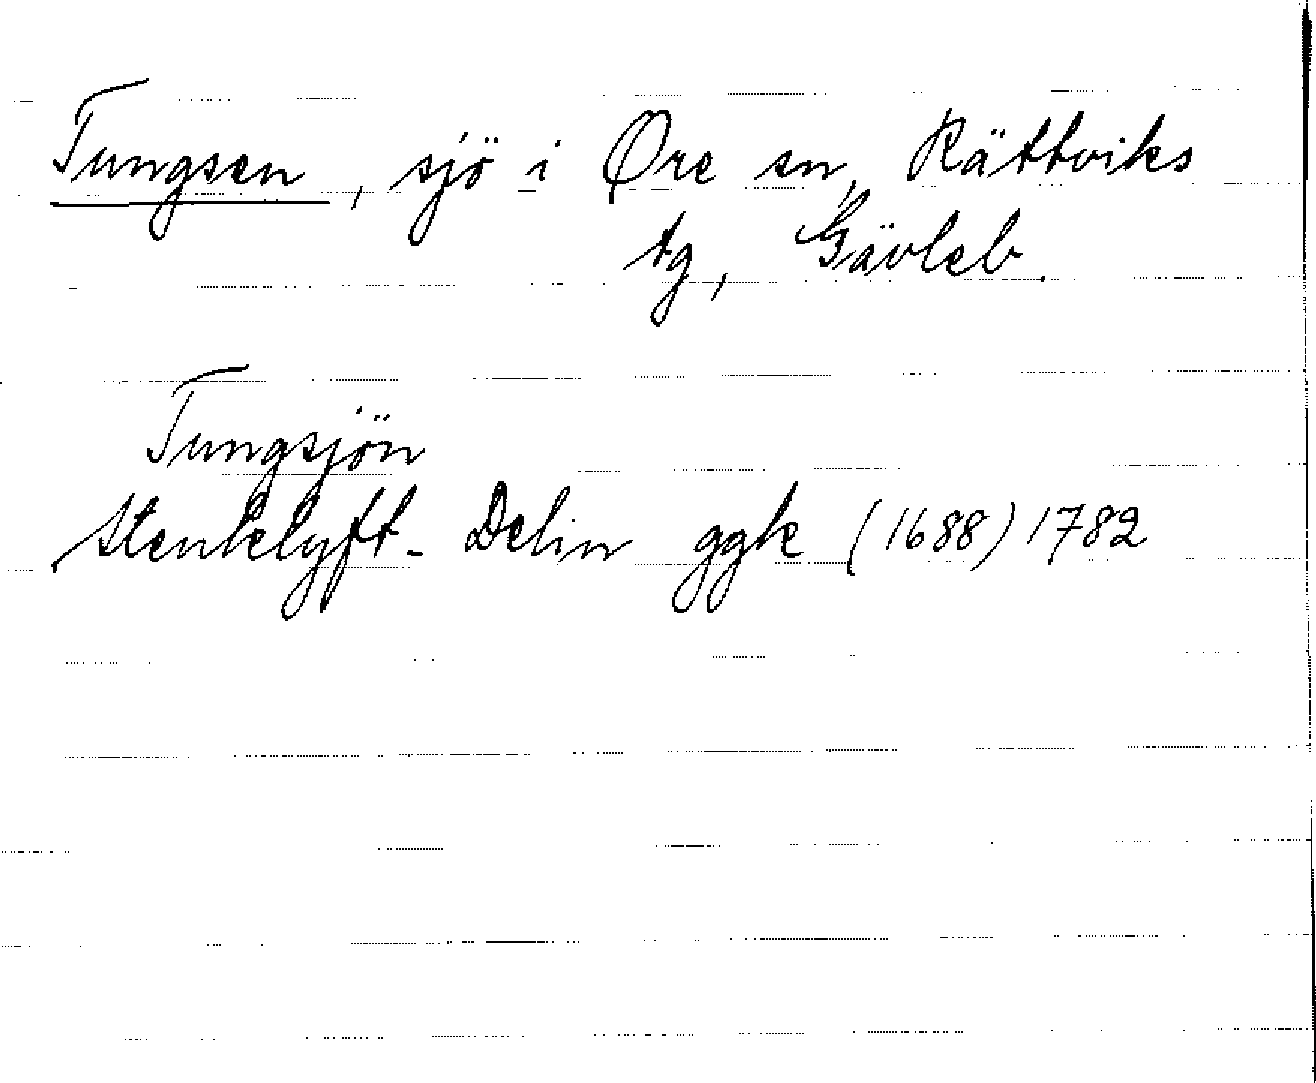 Tungsen, sjö i Øre sn, Rättviks
tg, Gävleb.
Tungsjön
Stenklyft-Delin ggk (1688) 1782